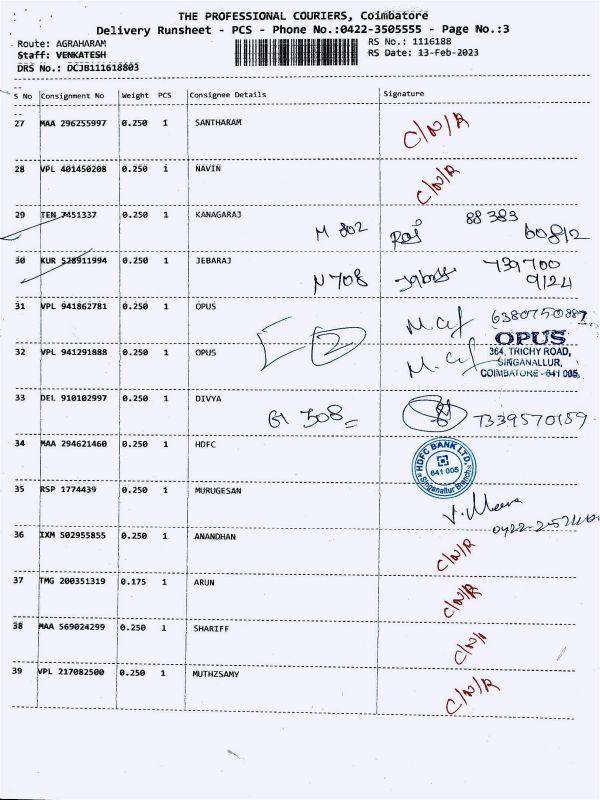 THE PROFESSIONAL COURIERS, Coimbatore
Delivery Runsheet - PCS - Phone No.:0422-3505555 - Page No.:3
Route: AGRAHARAM
RS No.: 1116188
Staff: VENKATESH
RS Date: 13-Feb-2023
DRS No.: DCJB111618803
S No Consignment No Weight PCS Consignee Details Signature
27 MAA 296255997 0.250 1 SANTHARAM C/N/R
28 VPL 401450208 0.250 1 NAVIN C/N/R
29 TEN 7451337 0.250 1 KANAGARAJ 88 383
M 802 Raj 60812
30 KUR 528911994 0.250 1 JEBARAJ 739700
N 708 9124
31 VPL 941862781 0.250 1 OPUS 6380750887
OPUS
32 VPL 941291888 0.250 1 OPUS 2 364, TRICHY ROAD,
SINGANALLUR,
COIMBATORE - 641 005.
33 DEL 910102997 0.250 1 DIVYA
G1 308 7339570159
34 MAA 294621460 0.250 1 HDFC
HDFC BANK LTD.
641 005
Singanallur Branch
35 RSP 1774439 0.250 1 MURUGESAN
V. Meena
36 IXM 502955855 0.250 1 ANANDHAN C/N/R
37 TMG 200351319 0.175 1 ARUN C/N/R
38 MAA 569024299 0.250 1 SHARIFF C/N/
39 VPL 217082500 0.250 1 MUTHZSAMY C/N/R